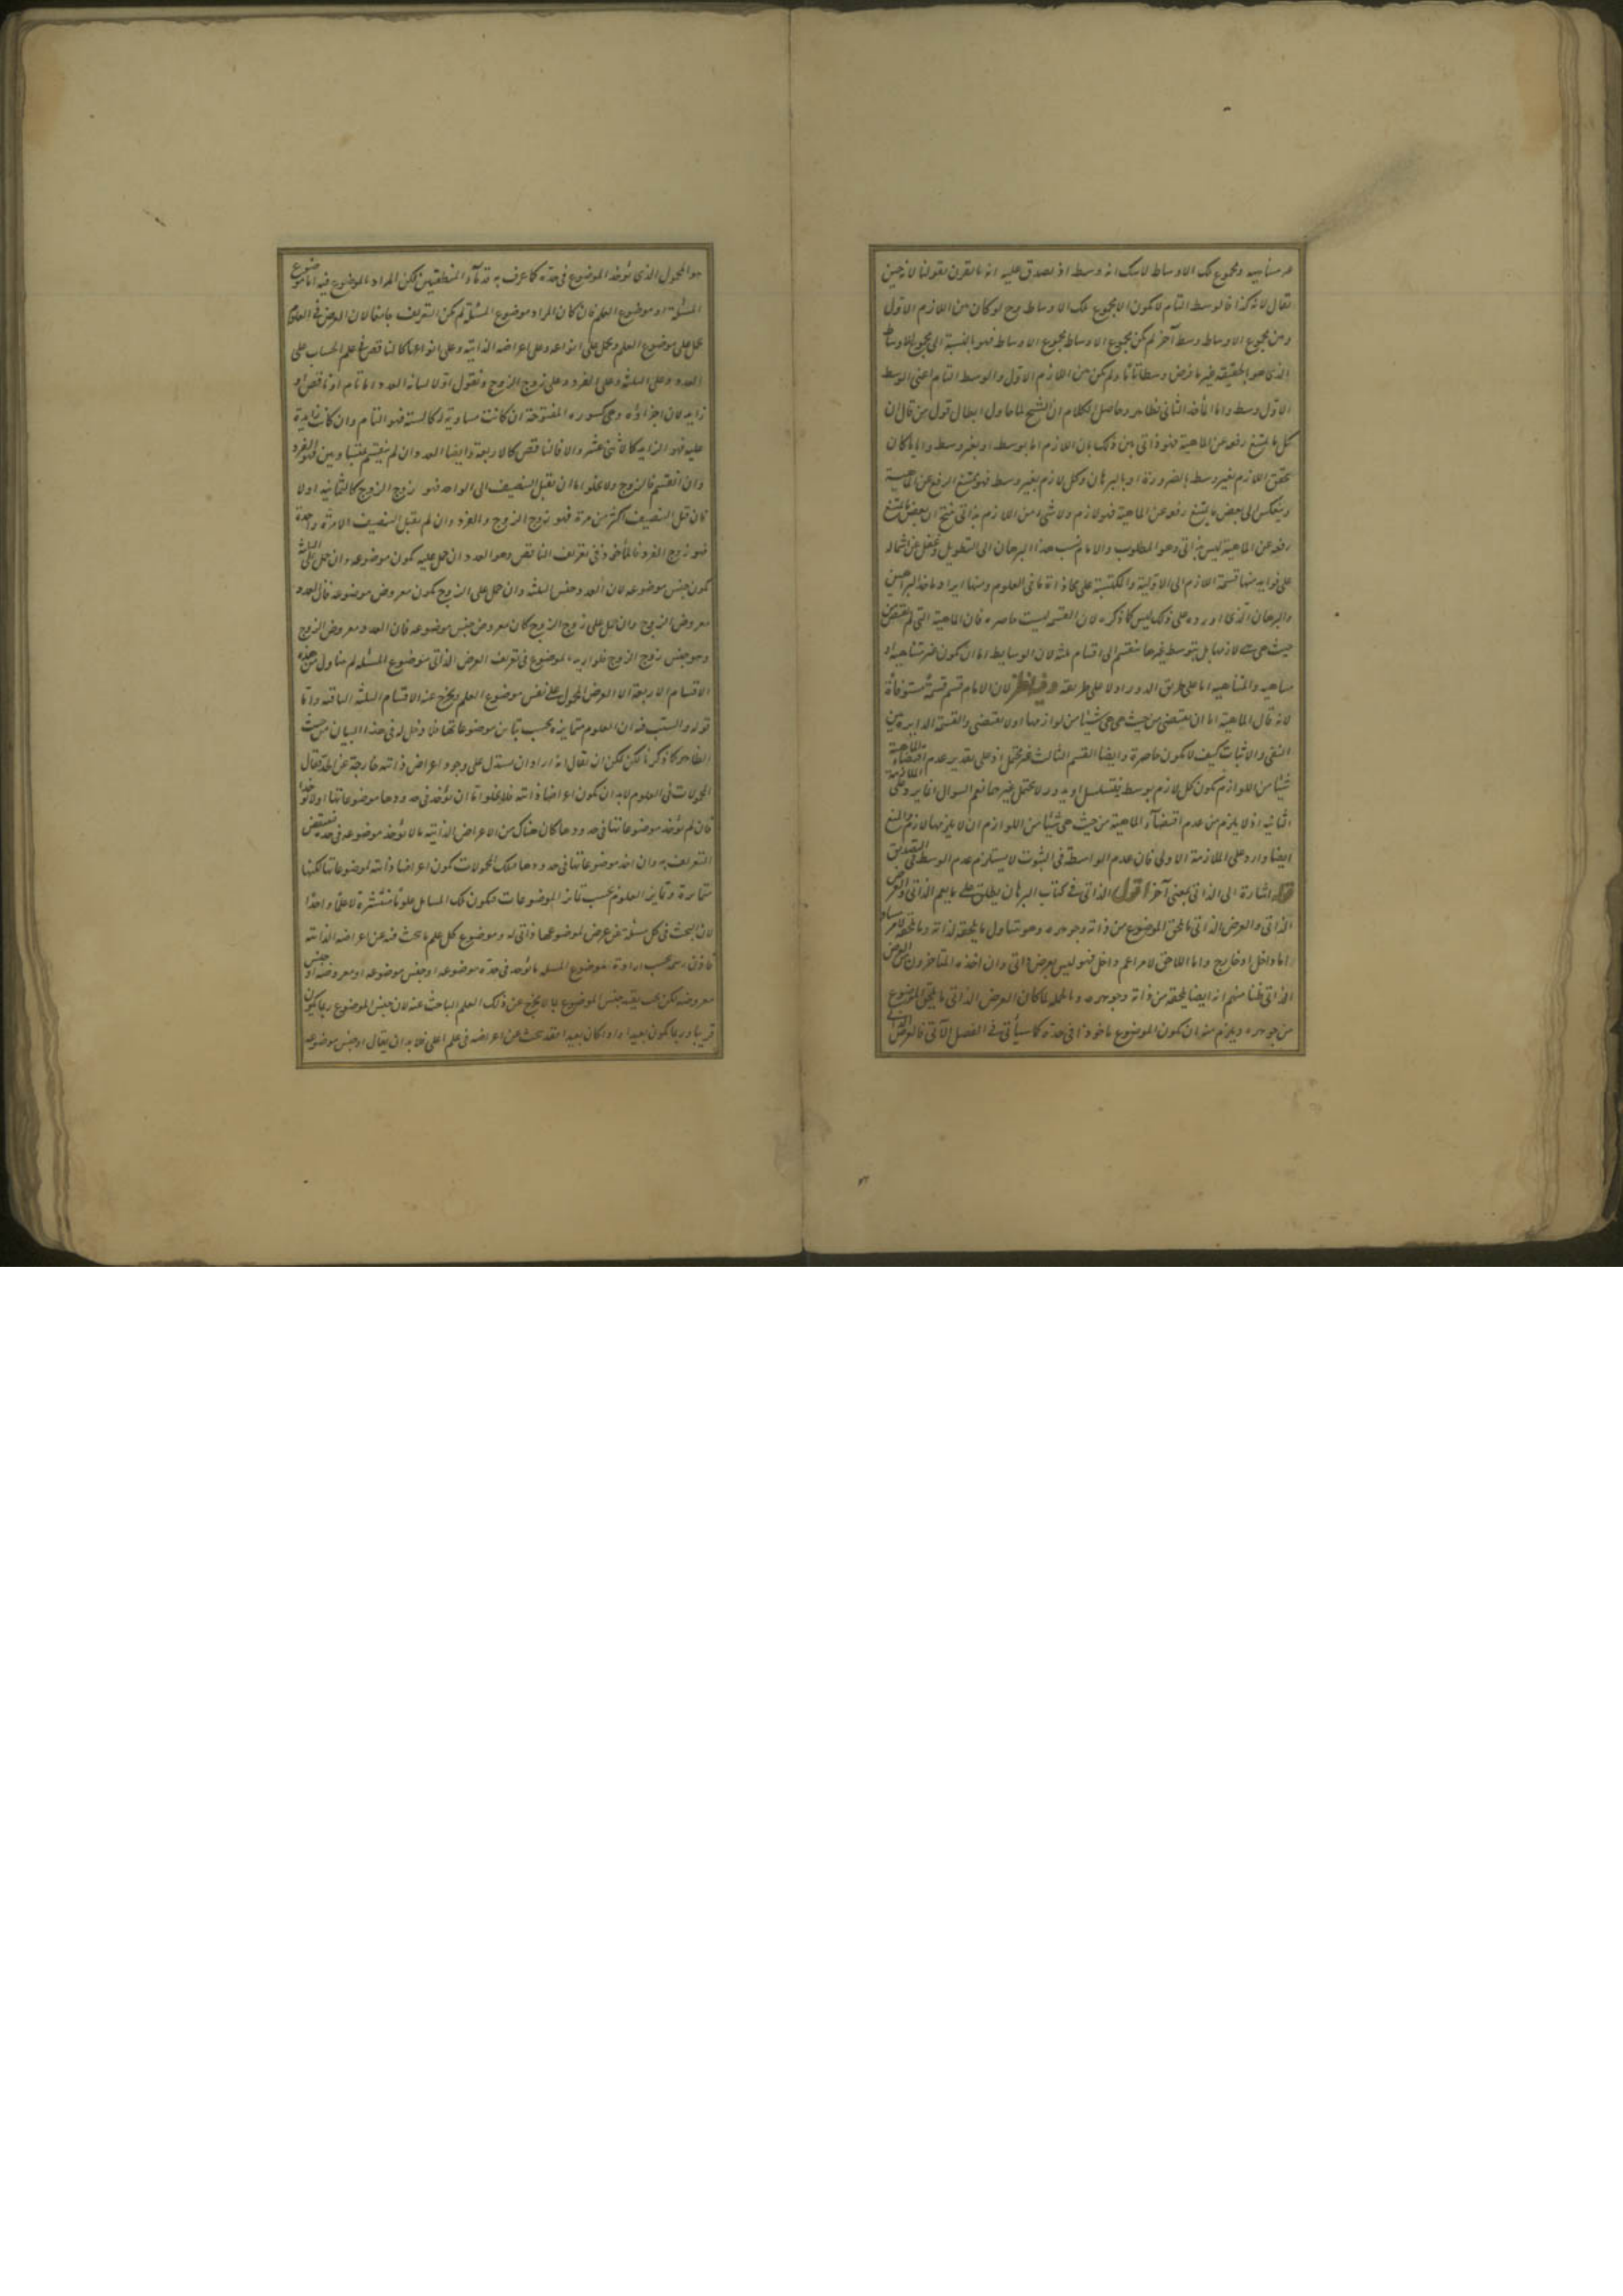 متناهية ومجموع تلك الاوساط لا شك انه وسط اذ يصدق عليه انه ما يقرن بقولنا لانه حين
يقال لانه كذا فالوسط التام لا يكون الا مجموع تلك الاوساط وح لو كان بين اللازم الاول
وبين مجموع الاوساط وسط آخر لم يكن مجموع الاوساط مجموع الاوساط فهو بالنسبة الى مجموع الاوساط
الذى هو بالحقيقة غير ما فرض وسطا تاما ولم يكن بين اللازم الاول والوسط التام اعنى الوسط
الاول وسط واما المأخذ الثانى فظاهر وحاصل الكلام ان الشيخ لما حاول ابطال قول من قال ان
كل ما يمتنع رفعه عن الماهية فهو ذاتى بين ذلك بان اللازم اما بوسط او بغير وسط واياما كان
تحقق اللازم بغير وسط بالضرورة او بالبرهان وكل لازم بغير وسط فهو يمتنع الرفع عن الماهية
وينعكس الى بعض ما يمتنع رفعه عن الماهية فهو لازم ولا شىء من اللازم بذاتى ينتج ان بعض ما يمتنع
رفعه عن الماهية ليس بذاتى وهو المطلوب والامام نسب هذا البرهان الى التطويل وغفل عن اشتماله
على فوايد منها قسمة اللازم الى الاولية والمكتسبة على محاذاة ما فى العلوم ومنها ايراد مأخذ البراهين
والبرهان الذى اورده على ذلك ليس كما ذكره لان القسمة ليست حاصرة فان الماهية التى لم تقتض من
حيث هى هى لازمها بل بتوسط غيرها ينقسم الى اقسام ثلثة لان الوسايط اما ان يكون غير متناهية او
متناهية والمتناهية اما على طريق الدور او لا على طريقته وفيه نظر لان الامام قسم قسمة مستوفاة
لانه قال الماهية اما ان يقتضى من حيث هى هى شيئا من لوازمها او لا يقتضى والقسمة الدايرة بين
النفى والاثبات كيف لا يكون حاصرة وايضا القسم الثالث غير محتمل اذ على تقدير عدم اقتضاء الماهية
شيئا من اللوازم يكون كل لازم بوسط فيتسلسل او يدور لا محتمل غيرهما نعم السؤال انما يرد على الملازمة
الثانية اذ لا يلزم من عدم اقتضاء الماهية من حيث هى شيئا من اللوازم ان لا يلزمها لازم والمنع
ايضا وارد على الملازمة الاولى فان عدم الواسطة فى الثبوت لا يستلزم عدم الوسط فى التصديق
قوله اشارة الى الذاتى بمعنى آخر اقول الذاتى فى كتاب البرهان يطلق على ما يعم الذاتى والعرض
الذاتى والعرض الذاتى ما يلحق الموضوع من ذاته وجوهره وهو يتناول ما يلحقه لذاته وما يلحقه لامر مساو
اما داخل او خارج واما اللاحق لامر اعم داخل فهو ليس بعرض ذاتى وان اخذه المتاخرون من العرض
الذاتى ظنا منهم انه ايضا يلحقه من ذاته وجوهره وبالجملة لما كان العرض الذاتى ما يلحق الموضوع
من جوهره ويلزم منه ان يكون الموضوع ماخوذا فى حده كما سيأتى فى الفصل الآتى فالعرض الذاتى
هو المحمول الذى يؤخذ الموضوع فى حده كما عرف به قدماء المنطقيين لكن المراد بالموضوع فيه اما موضوع
المسئلة او موضوع العلم فان كان المراد موضوع المسئلة لم يكن التعريف جامعا لان العرض فى العلوم
يحمل على موضوع العلم ويحمل على انواعه وعلى اعراضه الذاتية وعلى انواعها كالناقص فى علم الحساب على
العدد وعلى الثلثة وعلى الفرد وعلى زوج الزوج ونقول اولا لبيانه العدد اما تام او ناقص او
زايد لان اجزاؤه وهى كسوره المفتوحة ان كانت مساوية له كالستة فهو التام وان كانت زايدة
عليه فهو الزايد كالاثنى عشر والا فالناقص كالاربعة وايضا العدد ان لم ينقسم بمتساويين فهو الفرد
وان انقسم فالزوج ولا يخلو اما ان يقبل التنصيف الى الواحد فهو زوج الزوج كالثمانية او لا
فان قبل التنصيف اكثر من مرة فهو زوج الزوج والفرد وان لم يقبل التنصيف الا مرة واحدة
فهو زوج الفرد فالمأخوذ فى تعريف الناقص وهو العدد ان حمل عليه يكون موضوعه وان حمل على الثلثة
يكون جنس موضوعه لان العدد جنس الثلثة وان حمل على الزوج يكون معروض موضوعه فان العدد
معروض الزوج وان حمل على زوج الزوج كان معروض جنس موضوعه فان العدد معروض الزوج
وهو جنس زوج الزوج فلو اريد بالموضوع فى تعريف العرض الذاتى موضوع المسئلة لم يتناول من هذه
الاقسام الاربعة الا العرض المحمول على نفس موضوع العلم ويخرج عنه الاقسام الثلثة الباقية واما
قوله والسبب فيه ان العلوم متمايزة بحسب تباين موضوعاتها فلا دخل له فى هذا البيان من حيث
الظاهر كما ذكر لكن يمكن ان يقال انه اراد ان يستدل على وجود اعراض ذاتية خارجة عن الحد فقال
المحمولات فى العلوم لا بد ان يكون اعراضا ذاتية فلا يخلو اما ان يؤخذ فى حدودها موضوعاتها او لا تؤخذ
فان لم يؤخذ موضوعاتها فى حدودها كان هناك من الاعراض الذاتية ما لا يؤخذ موضوعه فى حده فينتقض
التعريف به وان اخذ موضوعاتها فى حدودها فتلك المحمولات يكون اعراضا ذاتية لموضوعاتها لكنها
متمايزة وتمايز العلوم بحسب تمايز الموضوعات فيكون تلك المسايل علوما منتشرة لا علما واحدا
لان البحث فى كل مسئلة عن عرض لموضوعها ذاتى له وموضوع كل علم ما يبحث فيه عن اعراضه الذاتية
فاذن رسمه بحسب ارادة موضوع المسئلة ما يؤخذ فى حده موضوعه او جنس موضوعه او معروضه او جنس
معروضه لكن يجب تقييد جنس الموضوع بما لا يخرج عن ذلك العلم الباحث عنه لان جنس الموضوع ربما يكون
قريبا وربما يكون بعيدا واذا كان بعيدا فقد يبحث عن اعراضه فى علم اعلى فلا بد ان يقال او جنس موضوعه